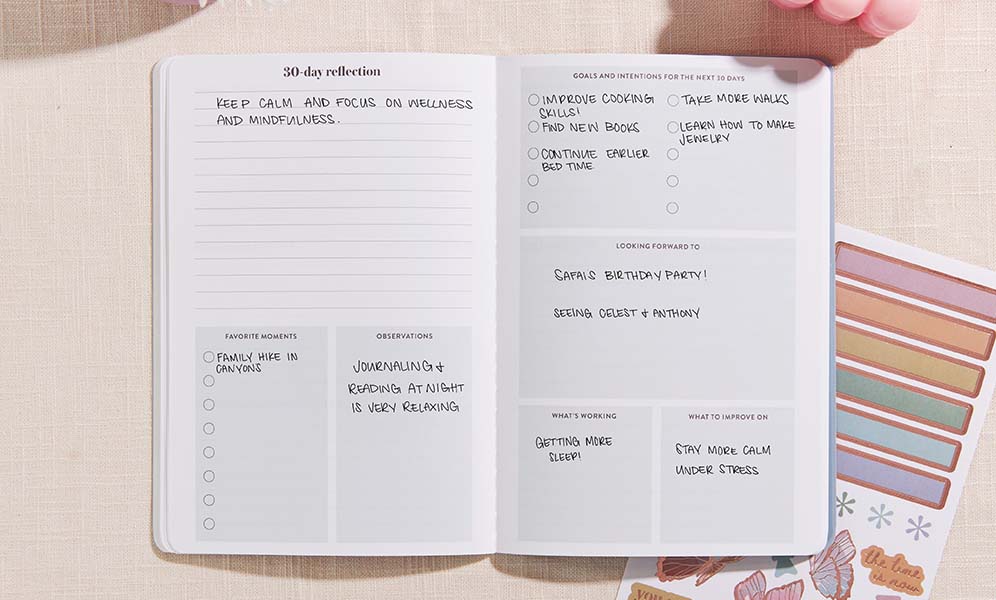 30-day reflection
KEEP CALM AND FOCUS ON WELLNESS
AND MINDFULNESS.
FAVORITE MOMENTS
FAMILY HIKE IN
CANYONS
OBSERVATIONS
JOURNALING &
READING AT NIGHT
IS VERY RELAXING
GOALS AND INTENTIONS FOR THE NEXT 30 DAYS
IMPROVE COOKING
SKILLS!
FIND NEW BOOKS
CONTINUE EARLIER
BED TIME
TAKE MORE WALKS
LEARN HOW TO MAKE
JEWELRY
LOOKING FORWARD TO
SAFAIS BIRTHDAY PARTY!
SEEING CELEST & ANTHONY
WHAT'S WORKING
GETTING MORE
SLEEP!
WHAT TO IMPROVE ON
STAY MORE CALM
UNDER STRESS
the time
is now